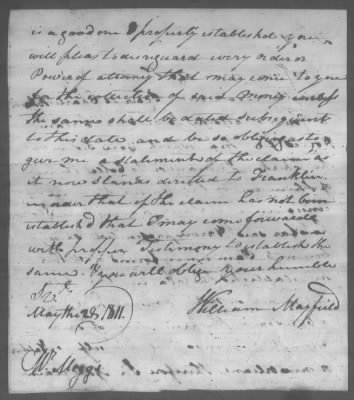 is a good one & properly established you
will pleas to disreguard every order or
Power of atorny that may come to you
for the of said money unless
the same shall be dated subsequent
to this date and be so obliging as to
give me a statements of the claim as
it now Stands directed to Franklin
in order that if the claim has not been
establish'd that I may come forward
with proper Testimony to establish the
same & you will oblige your humble
May the 28, 1811.
William Mayfield
Mr. Meggs